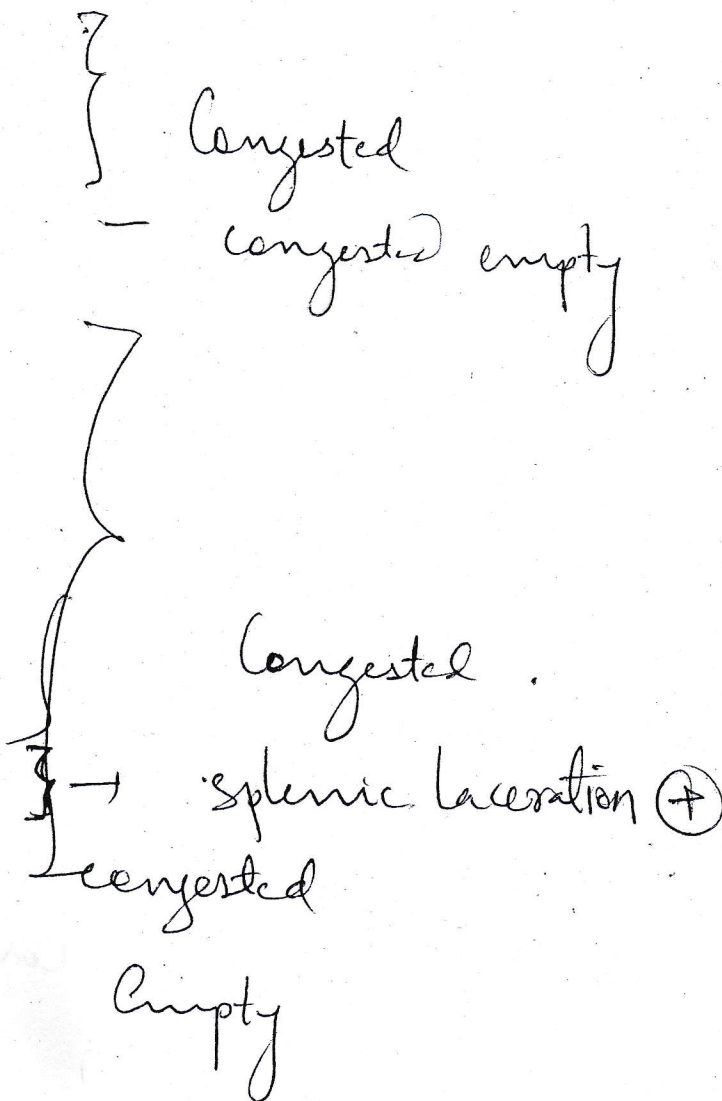 Congested
- congested empty
Congested.
→ splenic laceration ⊕
congested
Empty